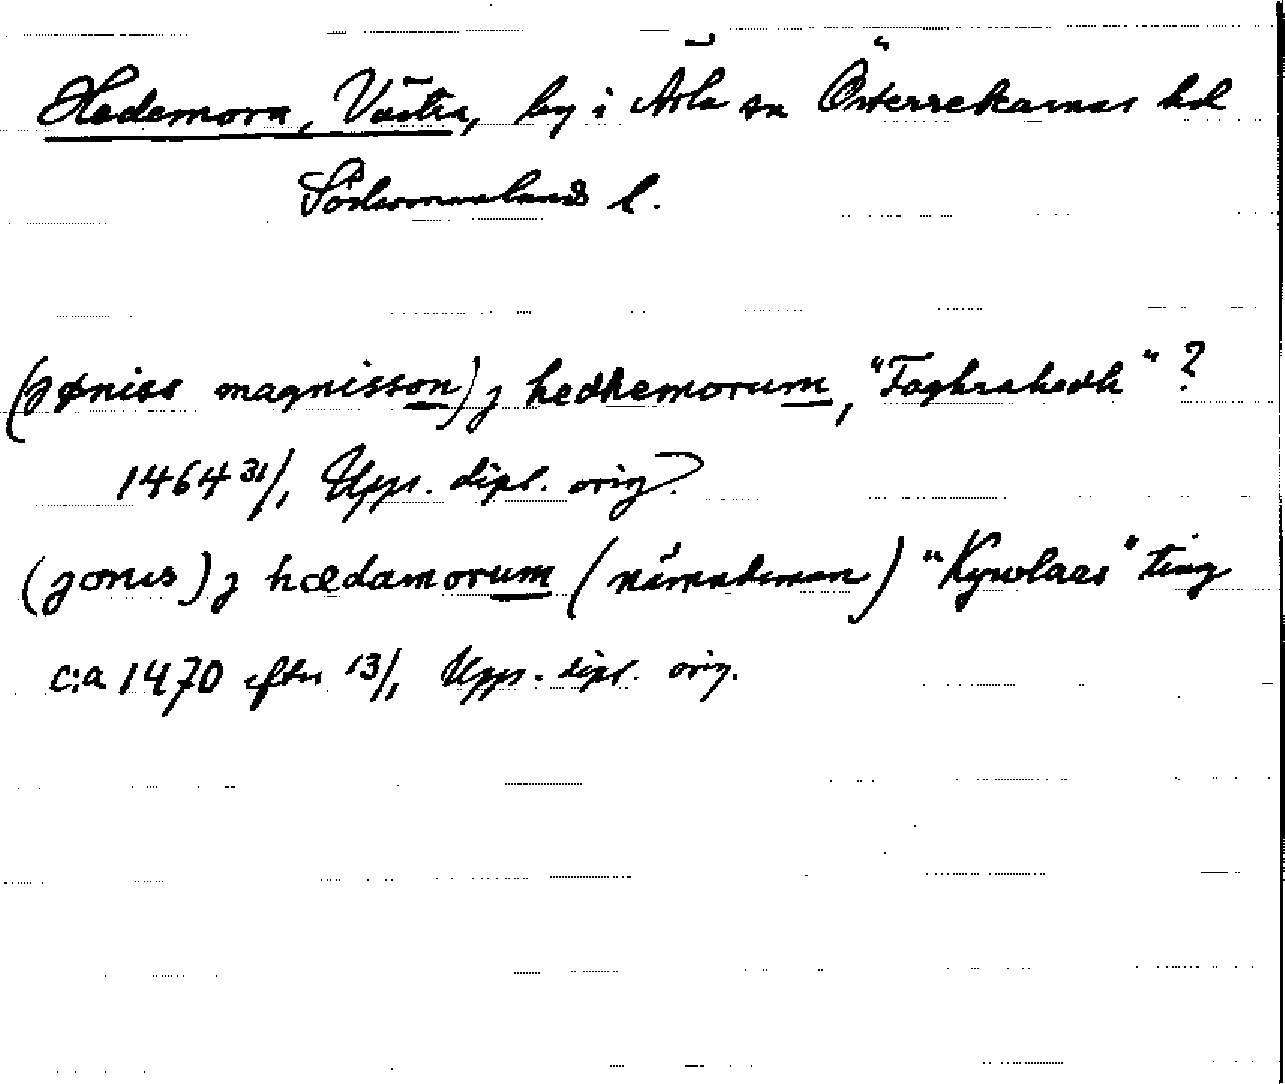 Hedemora, Västra, by i Ärla sn Österrekarnas hd
Södermanlands l.
(jøniss magnisson) j hedhemorum, "Faghrahedh" ?
1464 31/1 Upps. dipl. orig.
(jonis) j hædamorum (nämndeman) "Kywlaas" ting
c:a 1470 efter 13/1 Upps. dipl. orig.